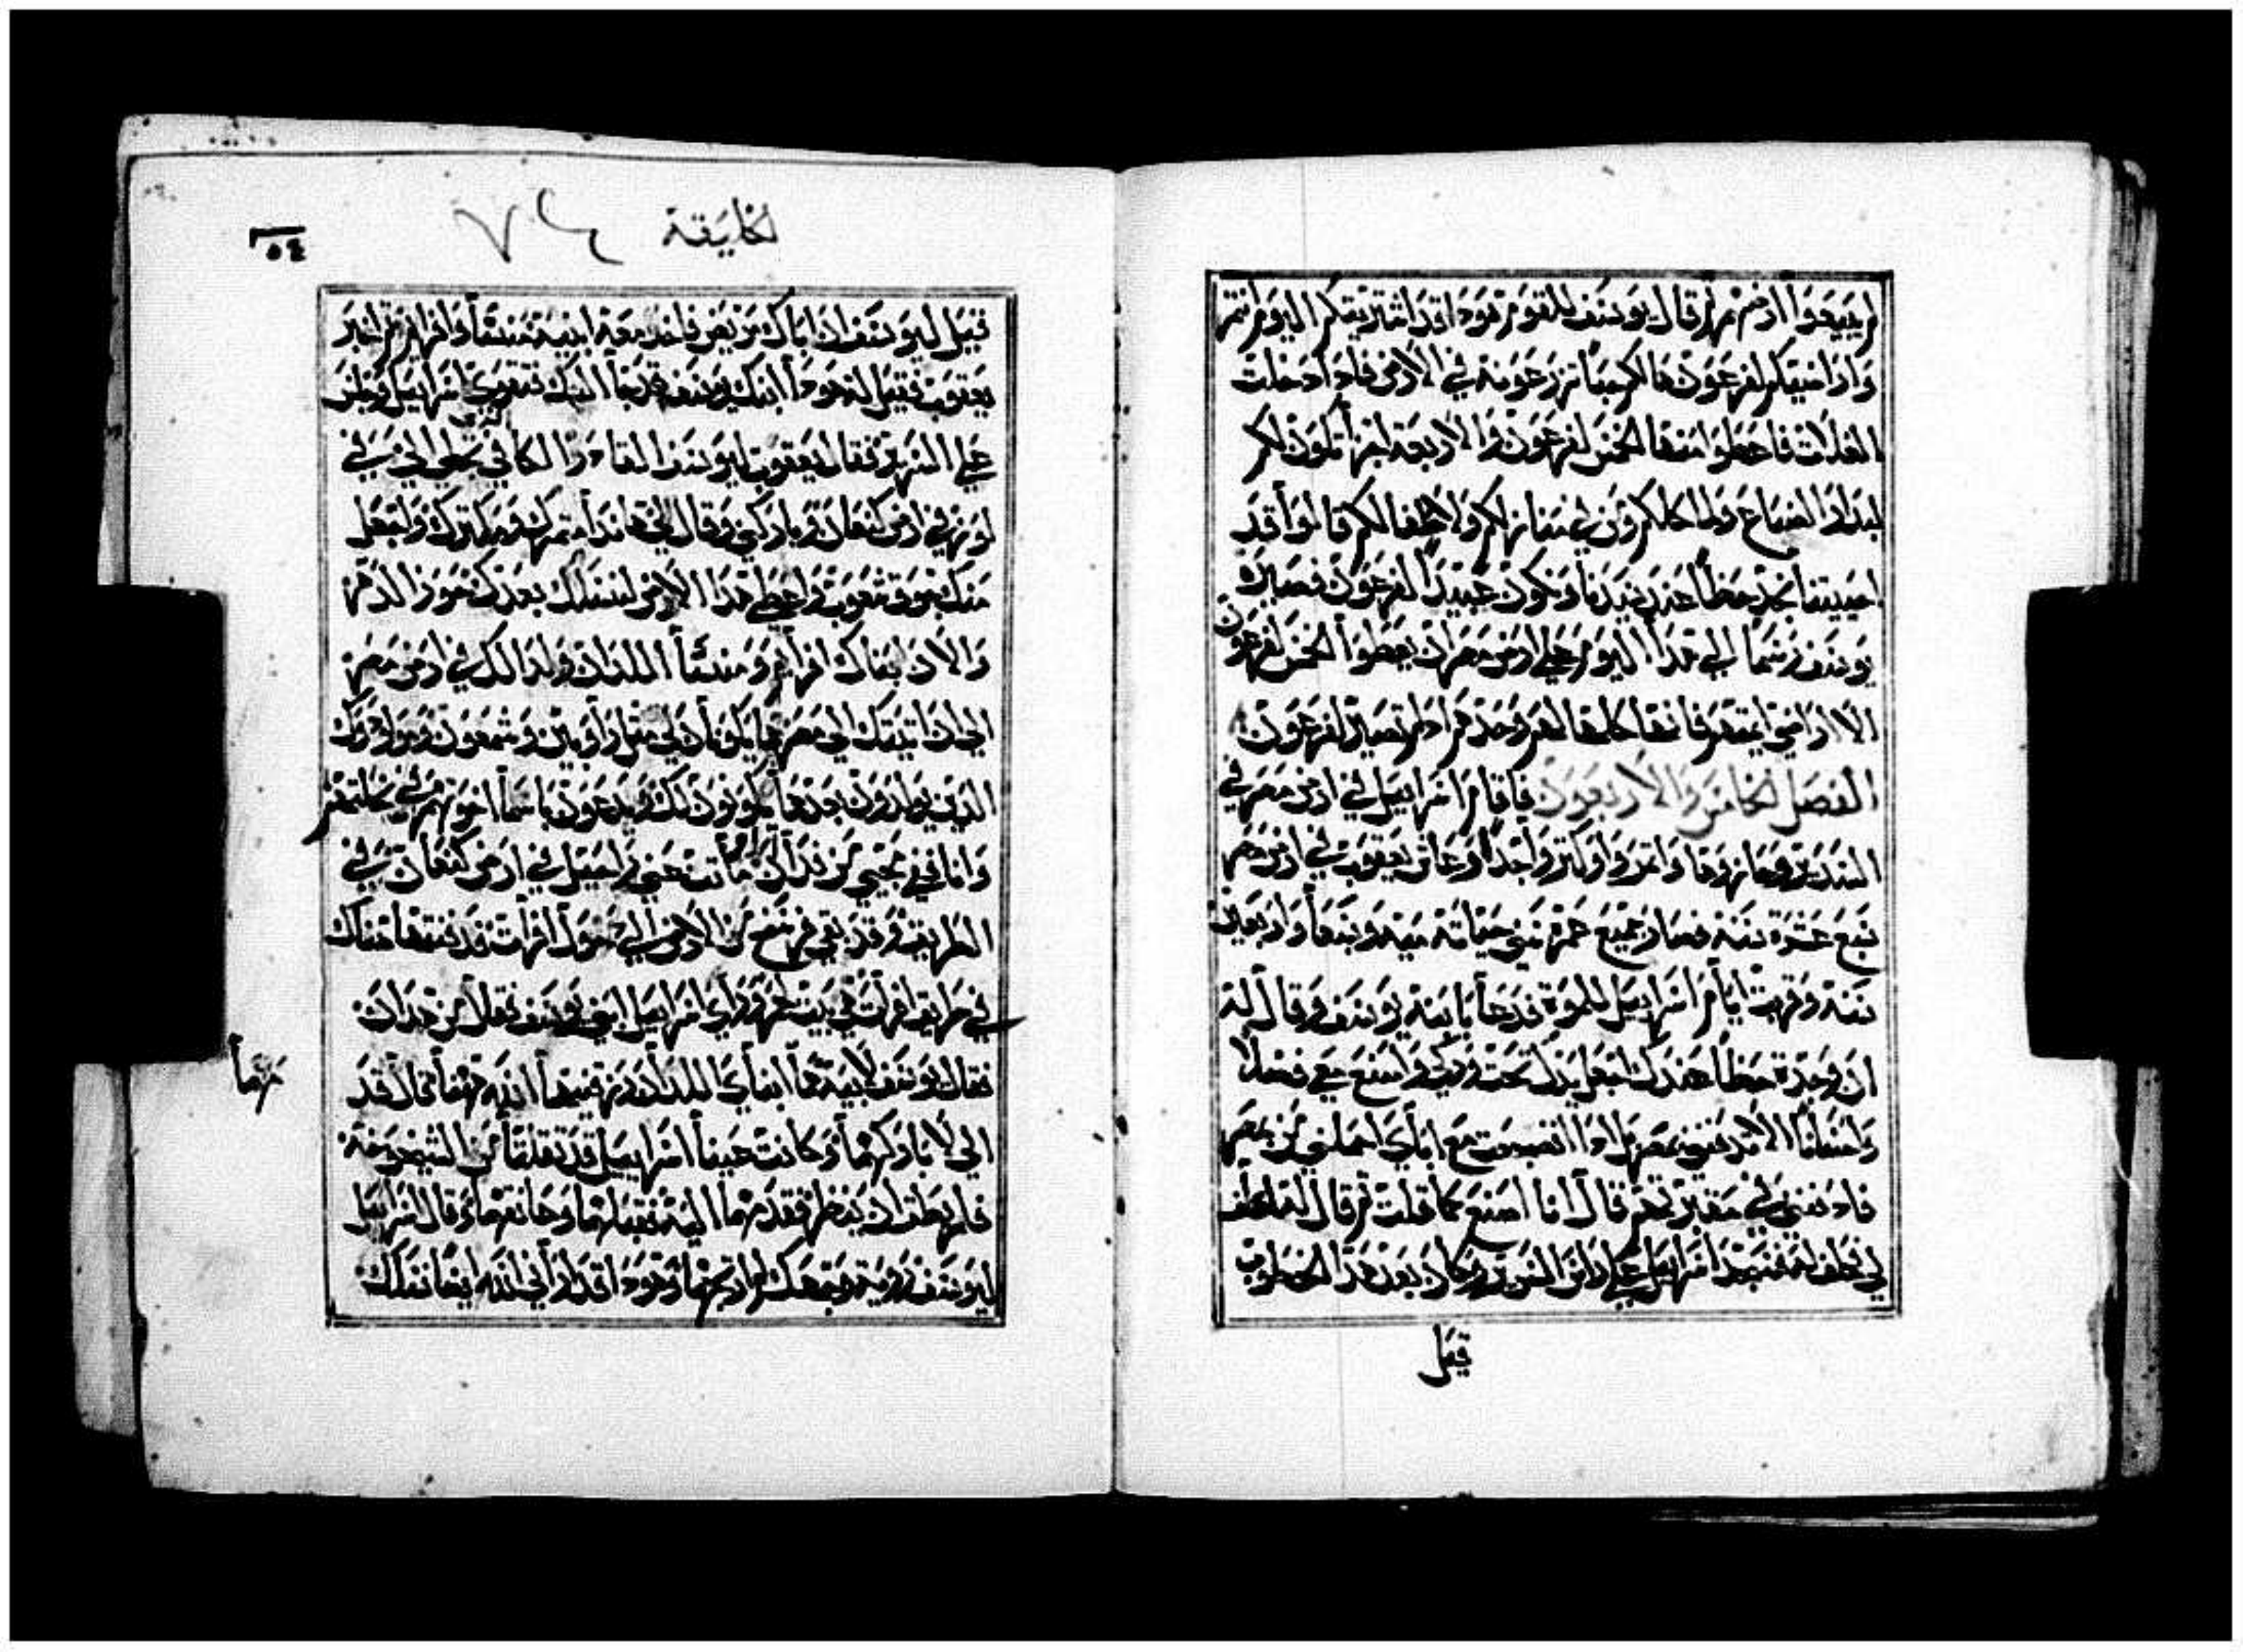 لم يبيعوا ارضهم ثم قال يوسف للقوم هودا قد اشتريتكم اليوم انتم
واراضيكم لفرعون هالكم حبا تزرعونه في الارض فادا دخلت
الغلات فاجعلوا منها الخمس لفرعون والاربعة اجزا تكون لكم
لبدار الضياع ولماكلكم ومن في منازلكم ولاطفالكم قالوا قد
احييتنا نجد حظا عند سيدنا ونكون عبيدا لفرعون فصيره
يوسف رسما الي هدا اليوم علي ارض مصر ان يعطوا الخمس لفرعون
الا اراضي ايمتهم فانها كلها لهم وحدهم اد لم تصير لفرعون
الفصل الخامس والاربعون فاقام اسراييل في ارض مصر في
السدير وحازوها واتمروا وكتروا جدا وعاش يعقوب في ارض مصر
سبع عشرة سنة فصار جميع عمره سني حياته مية وسبعا واربعين
سنة وقربت ايام اسراييل للموة فدعا بابنه يوسف وقال له
ان وجدة حظا عندك اجعل يدك تحت وركي واصنع معي فضلا
واحسانا الا تدفني بمصر بل ادا انضجعت مع اباي احملني من مصر
فادفني في مقبرتهم قال انا اصنع كما قلت ثم قال له احلف
لي فحلف له فسجد اسراييل علي راس السرير وكان بعد هدا الخطوب
قيل
الخليقة ٧٤
٥٤
قيل ليوسف ان اباك مريض فاخد معه ابنيه منسا وافرايم ثم اخبر
يعقوب فقيل له هودا ابنك يوسف قد جا اليك فتقوي اسراييل وجلس
علي السرير فقال يعقوب ليوسف القادر الكافي تجلي الي في
لوز في ارض كنعان وباركني وقال لي هاندا متمرك ومكترك واجعل
منك جوق شعوب واعطي هدا الارض لنسلك بعدك حوز الدهر
والان ابناك افرايم ومنسا اللدان ولدا لك في ارض مصر
الي ان اتيتك الي مصر هما يكونان لي متل راوبين وشمعون ومولودوك
الدين يولدون بعدهما يكونون لك ويدعون باسما اخوتهم في نحلتهم
وانا في مجيي من فدان ماتت عني راحيل في ارض كنعان في
الطريق وقد بقي فرسخ من الارض الي دخول افرات فدفنتها هناك
في طريق افرات هي بيت لحم وراي اسراييل ابني يوسف فقال من هدان
فقال يوسف لابيه هما ابناي اللدان رزقنيهما الله ههنا قال قد
مهما
الي لاباركهما وكانت عينا اسراييل قد تقلتا من الشيخوخة
فلم يطق ان ينظر فقدمهما اليه فقبلهما وعانقهما وقال اسراييل
ليوسف روية وجهك لم ارجها وهودا قد اراني الله ايضا نسلك